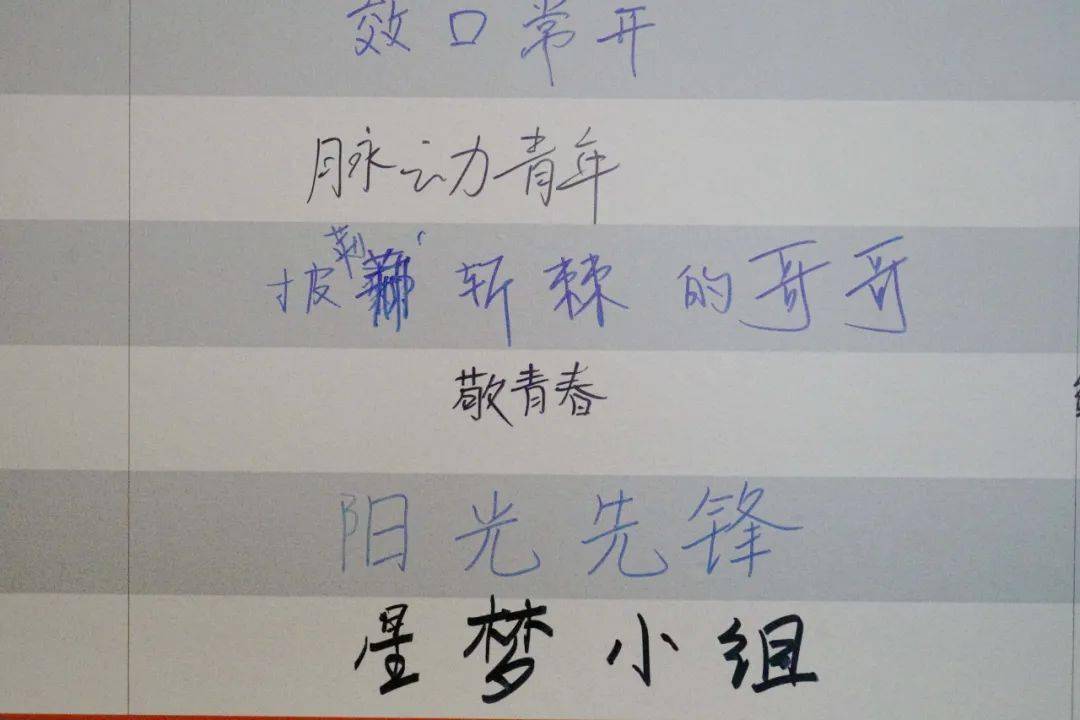 效口常开
脉动青年
披荆斩棘的哥哥
敬青春
阳光先锋
星梦小组